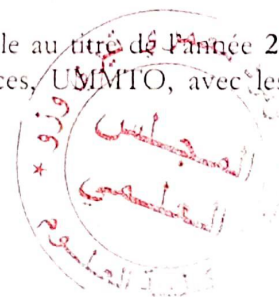 le au titre de l'année 2
ces, UMMTO, avec les
المجلس
العلمي
كلية العلوم
وزو